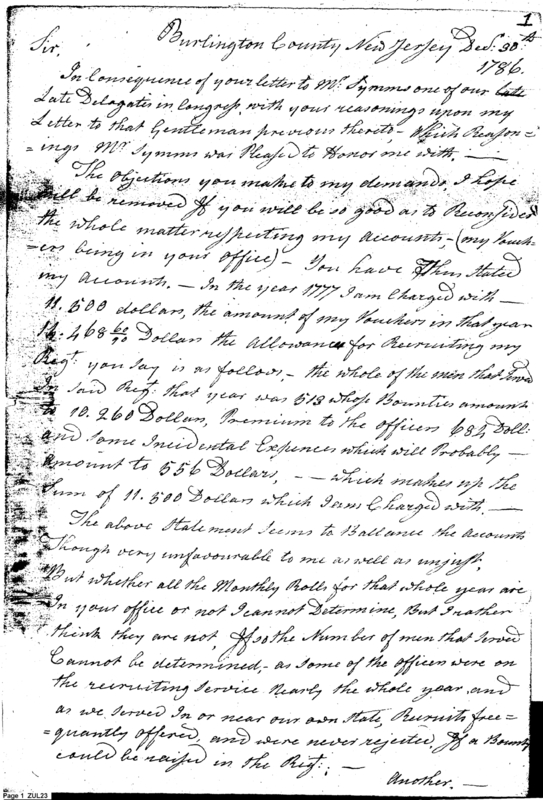 1
Burlington County New Jersey Decr. 30th
Sir, 1786.
In Consequence of your letter to Mr. Symms one of our late
Late Delegates in Congress, with your reasonings upon my
Letter to that Gentleman previous thereto, - Which Reason=
=ings Mr. Symms was Pleased to Honor me with. —
The Objections you make to my demands, I hope
will be removed If you will be so good as to Reconsider
the whole matter respecting my Accounts, - (my Vouch-
=ers being in your Office) - You have Thus Stated
my Accounts. - In the year 1777 I am Charged with —
11.500 dollars, the amount of my Vouchers in that year
14.468 60/90 Dollars the Allowance for Recruiting my
Regt. you Say is as follows, - the whole of the men that Served
In said Regt. that year was 513 whose Bounties amount
to 10.260 Dollars, Premium to the officers 684 Doll:
and some Incidental Expences which will Probably —
amount to 556 Dollars, - - which makes up the
Sum of 11.500 Dollars which I am Charged with, —
The above Statement Seems to Ballance the Accounts
Though very unfavourable to me as well as unjust,
But whether all the Monthly Rolls for that whole year are
In your office or not I cannot Determine, But I rather
think they are not, If so the Number of men that Served
Cannot be determined, - as some of the officers were on
the recruiting Service Nearly the whole year, and
as we Served In or near our own State, Recruits fre=
=quantly offered, and were never rejected, If a Bounty
could be raised in the Regt.; —
Another. —
Page 1 ZUL23